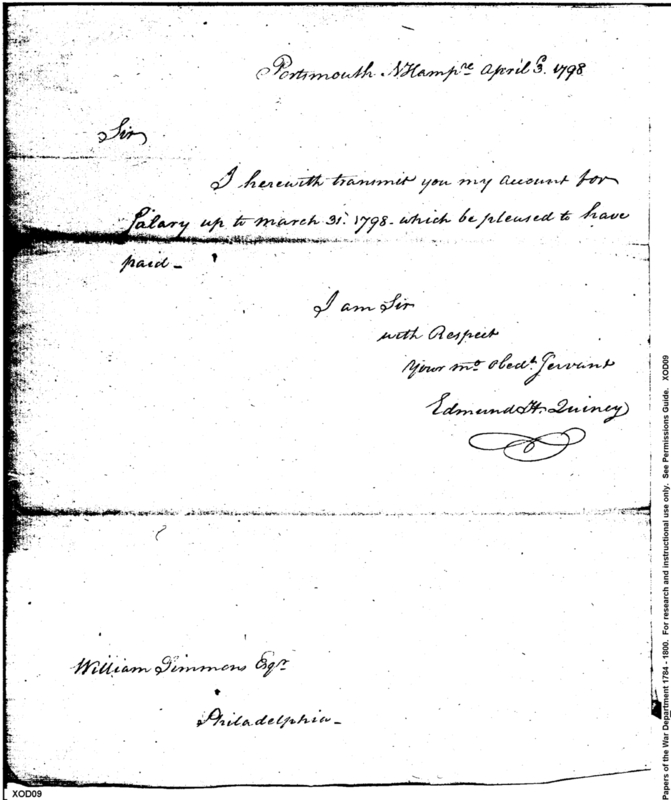 Portsmouth NHampre April 3. 1798
Sir
I herewith transmit you my account for
Salary up to march 31. 1798 - which be pleased to have
paid -
I am Sir
with Respect
Your mo. Obedt. Servant
Edmund H. Quincy
William Simmons Esqr.
Philadelphia -
XOD09
Papers of the War Department 1784 - 1800. For research and instructional use only. See Permissions Guide. XOD09